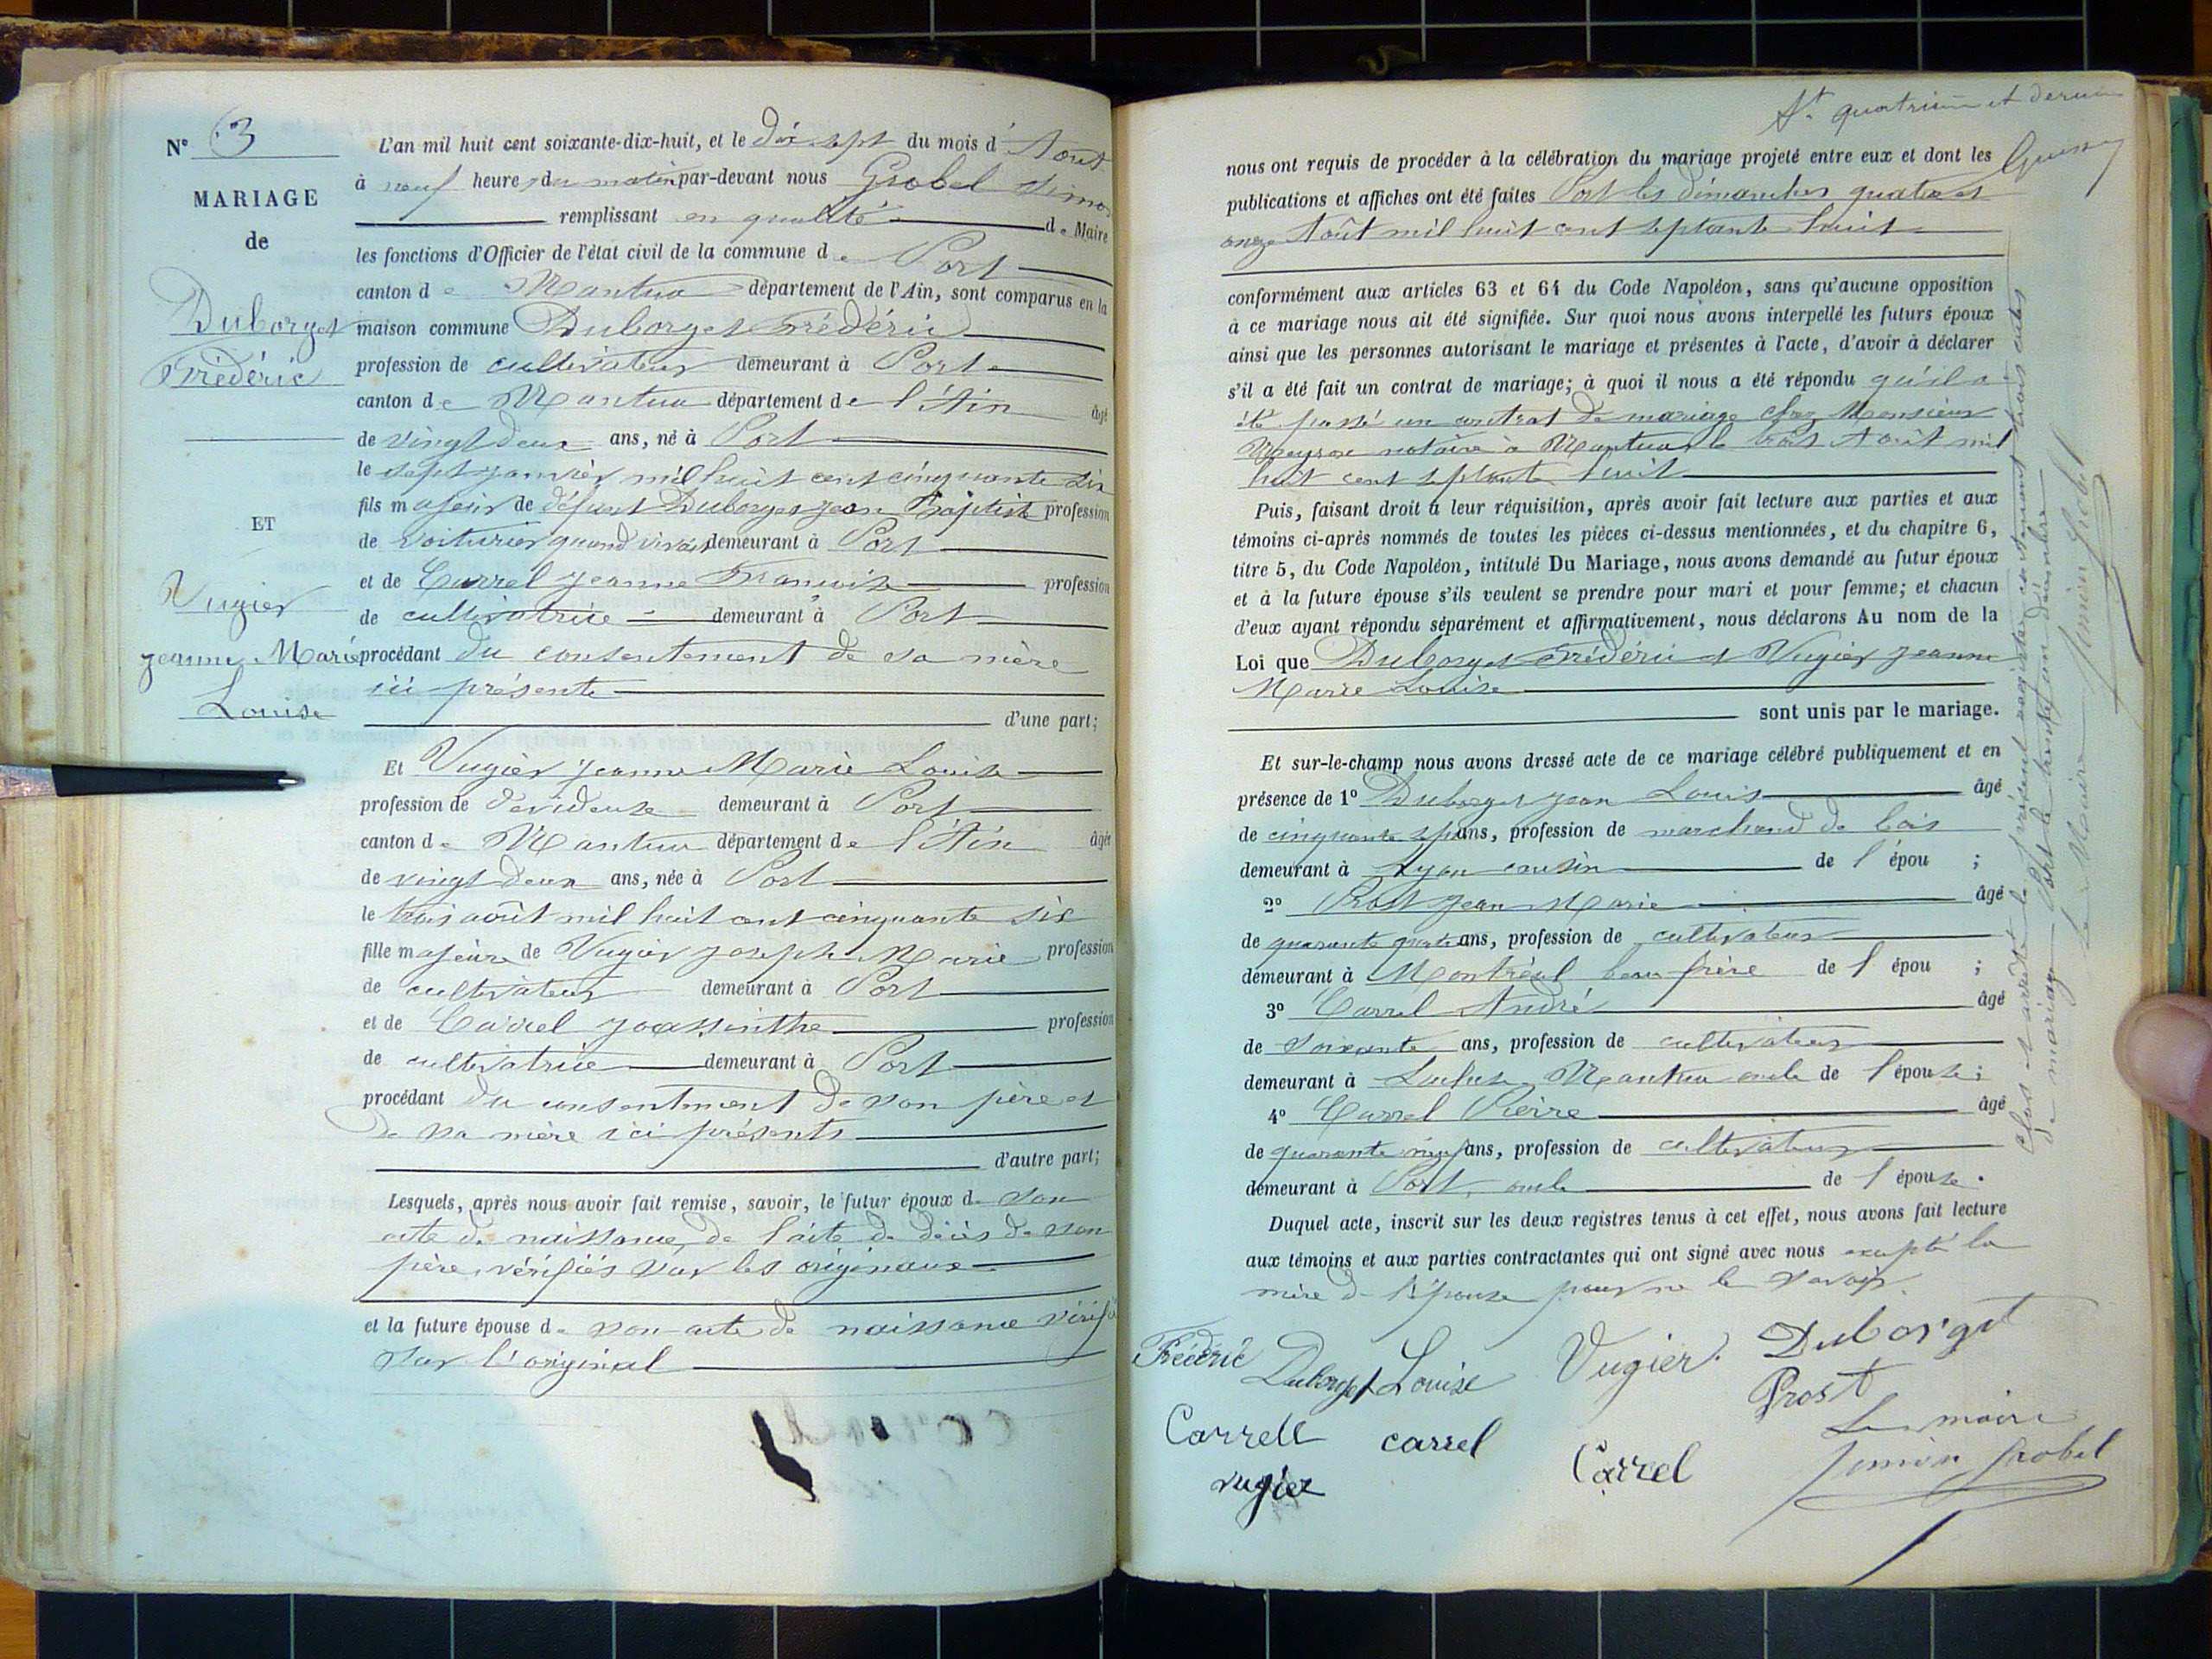 N° 3
MARIAGE
de
Duborget
Frédéric
ET
Vugier
jeanne Marie
Louise
L'an mil huit cent soixante-dix-huit, et le dix sept du mois d' Août
à neuf heures du matin par-devant nous Grobel Simon
remplissant en qualité de Maire
les fonctions d'Officier de l'état civil de la commune de Port
canton de Mantua département de l'Ain, sont comparus en la
maison commune Duborget Frédéric
profession de cultivateur demeurant à Port
canton de Mantua département de l'Ain âgé
de vingt deux ans, né à Port
le sept janvier mil huit cent cinquante six
fils majeur de défunt Duborget jean Baptiste profession
de voiturier quand vivait demeurant à Port
et de Carrel jeanne Francoise profession
de cultivatrice demeurant à Port
procédant du consentement de sa mère
ici présente
d'une part;
Et Vugier jeanne Marie Louise
profession de devideuse demeurant à Port
canton de Mantua département de l'Ain âgée
de vingt deux ans, née à Port
le trois août mil huit cent cinquante six
fille majeure de Vugier joseph Marie profession
de cultivateur demeurant à Port
et de Carrel joassinthe profession
de cultivatrice demeurant à Port
procédant du consentment de son père et
de sa mère ici présents
d'autre part;
Lesquels, après nous avoir fait remise, savoir, le futur époux de son
acte de naissance, de l'acte de décès de son
père, vérifiés sur les originaux
et la future épouse de son acte de naissance vérifié
sur l'original
St quatrième et dernier
nous ont requis de procéder à la célébration du mariage projeté entre eux et dont les
publications et affiches ont été faites Port les dimanches quatre et
onze Août mil huit cent septante huit
conformément aux articles 63 et 64 du Code Napoléon, sans qu'aucune opposition
à ce mariage nous ait été signifiée. Sur quoi nous avons interpellé les futurs époux
ainsi que les personnes autorisant le mariage et présentes à l'acte, d'avoir à déclarer
s'il a été fait un contrat de mariage; à quoi il nous a été répondu qu'il a
été passé un contrat de mariage chez Monsieur
notaire à Mantua le trois Août mil
huit cent septante huit
Puis, faisant droit à leur réquisition, après avoir fait lecture aux parties et aux
témoins ci-après nommés de toutes les pièces ci-dessus mentionnées, et du chapitre 6,
titre 5, du Code Napoléon, intitulé Du Mariage, nous avons demandé au futur époux
et à la future épouse s'ils veulent se prendre pour mari et pour femme; et chacun
d'eux ayant répondu séparément et affirmativement, nous déclarons Au nom de la
Loi que Duborget Frédéric et Vugier jeanne
Marie Louise
sont unis par le mariage.
Et sur-le-champ nous avons dressé acte de ce mariage célébré publiquement et en
présence de 1° Duborget jean Louis âgé
de cinquante sept ans, profession de marchand de bois
demeurant à Lyon cousin de l'épou ;
2° Prost jean Marie âgé
de quarante quatre ans, profession de cultivateur
demeurant à Montréal beau frère de l'épou ;
3° Carrel André âgé
de soixante ans, profession de cultivateur
demeurant à Mantua oncle de l'épouse;
4° Carrel Pierre âgé
de quarante neuf ans, profession de cultivateur
demeurant à Port, oncle de l'épouse.
Duquel acte, inscrit sur les deux registres tenus à cet effet, nous avons fait lecture
aux témoins et aux parties contractantes qui ont signé avec nous excepté la
mère de l'épouse pour ne le savoir.
Frédéric Duborget Louise Vugier. Duborget
Prost
Carrell carrel Carrel Le maire
vugier Simon Grobel
Clos et arrêté le présent registre contenant trois actes
de mariage Port le trente un décembre
Le Maire Simon Grobel